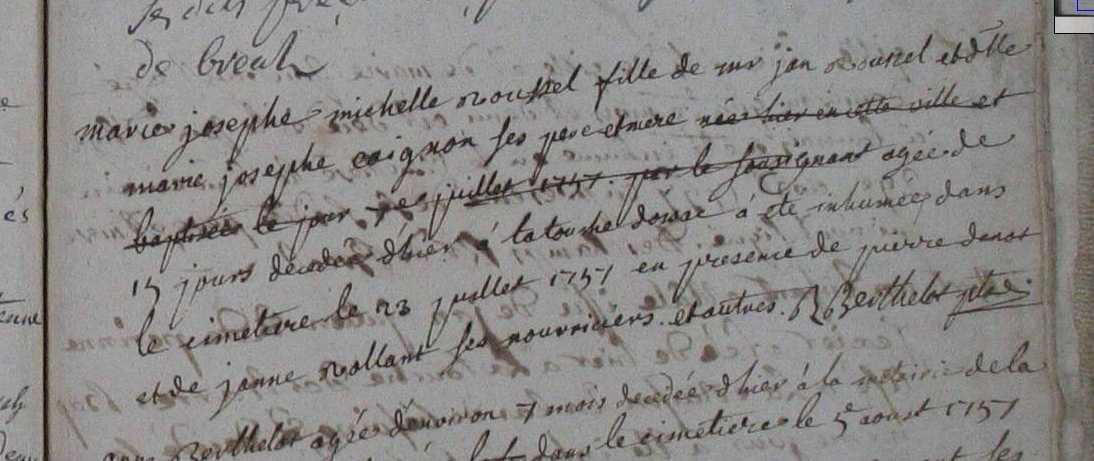 de breal
marie josephe michelle roussel fille de mr jan roussel et dlle
marie josephe coignon ses pere et mere née hier en cette ville et
baptisée le jour 7e juillet 1757 par le sousignant agée de
15 jours décédée d'hier à la touche à été inhumée dans
le cimetiere le 23 juillet 1757 en presence de pierre denot
et de janne rollant ses nourriciers et autres. R Berthelot ptre
Berthelot agée d'environ 7 mois decedée d'hier à la métairie de la
dans le cimetiere le 5e aoust 1757
ses